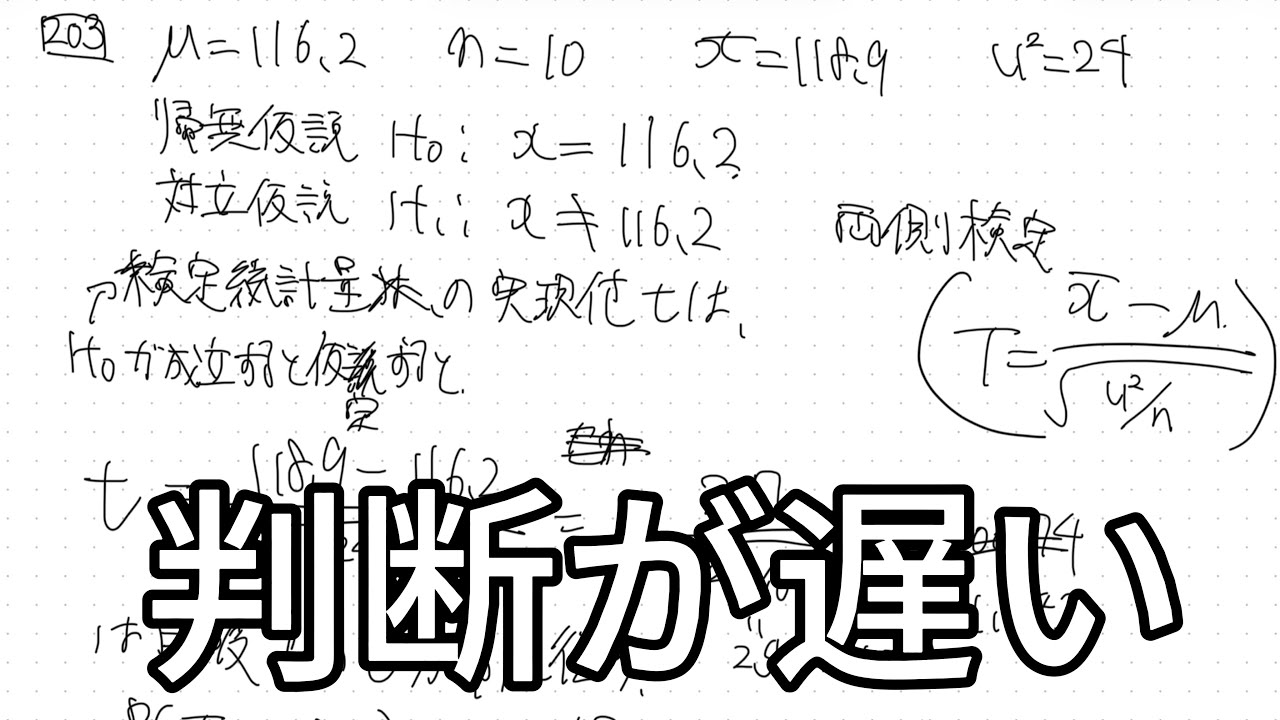 203 μ=116.2 n=10 x̄=118.9 u²=24
帰無仮説 H₀: x=116.2
対立仮説 H₁: x≠116.2 両側検定
検定統計量 の実現値tは、
(T= x̄-μ / √u²/n)
H₀が成立すると仮定すると、
t = 118.9-116.2 =
判断が遅い